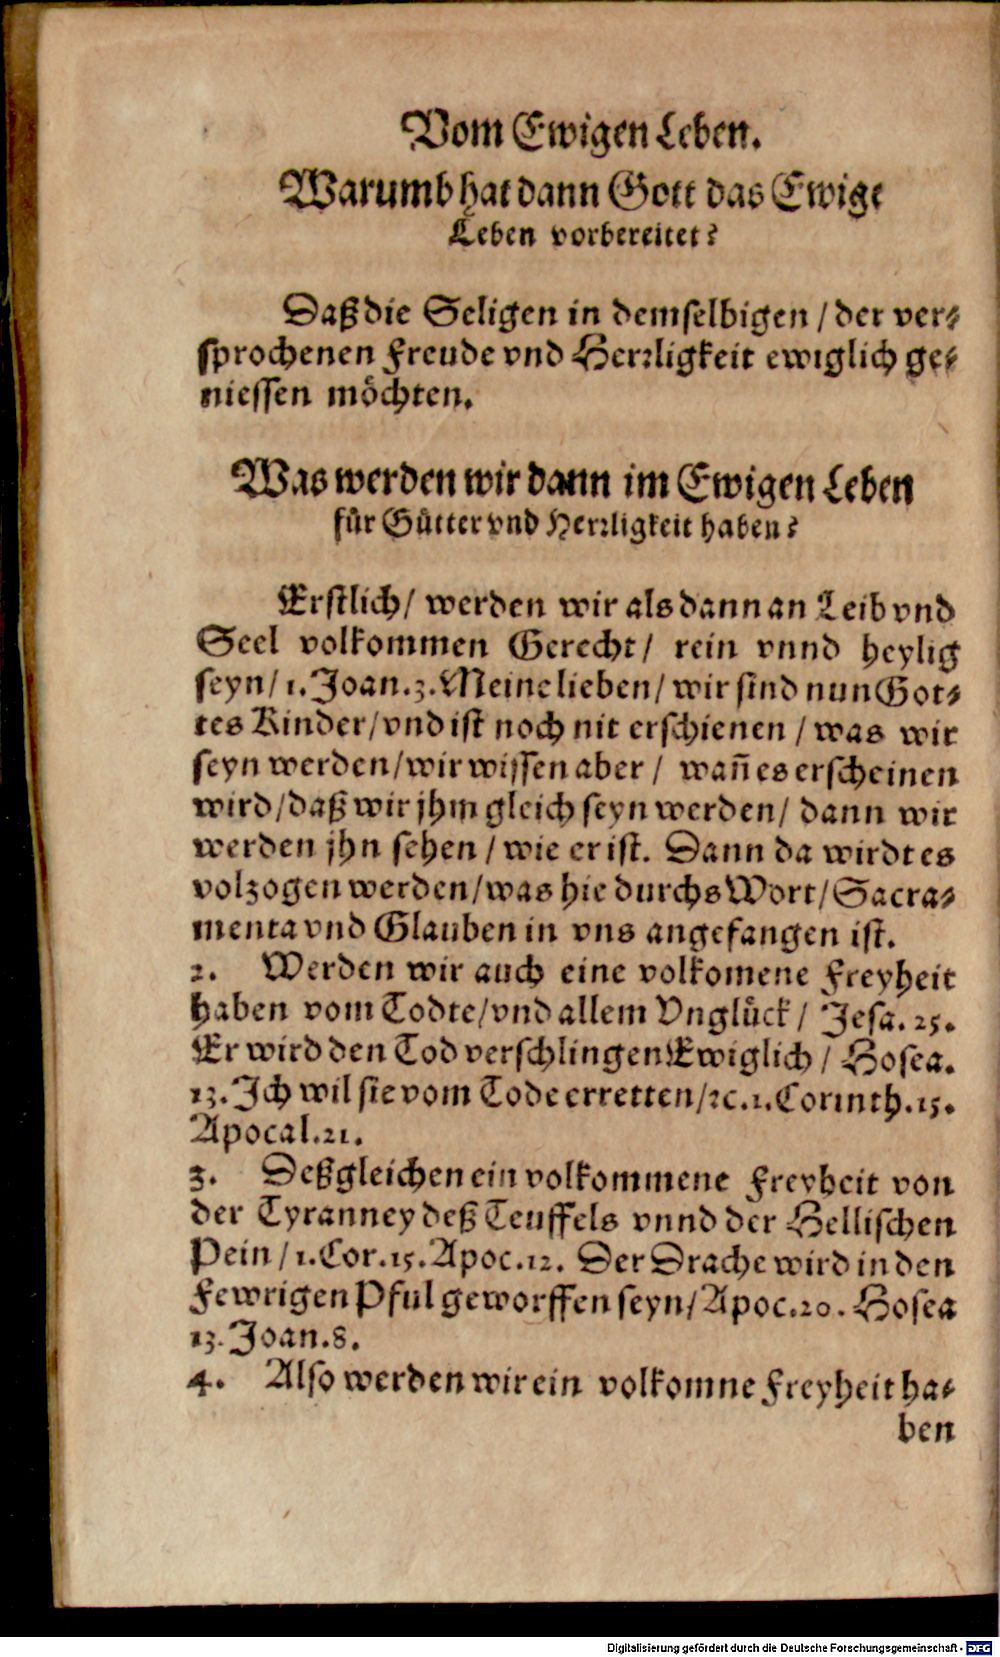 Vom Ewigen Leben.
Warumb hat dann Gott das Ewige
Leben vorbereitet?
Daß die Seligen in demselbigen / der ver-
sprochenen Freude vnd Herꝛligkeit ewiglich ge-
niessen möchten.
Was werden wir dann im Ewigen Leben
für Gütter vnd Herꝛligkeit haben?
Erstlich / werden wir als dann an Leib vnd
Seel volkommen Gerecht / rein vnnd heylig
seyn / 1. Joan. 3. Meine lieben / wir sind nun Got-
tes Kinder / vnd ist noch nit erschienen / was wir
seyn werden / wir wissen aber / wañ es erscheinen
wird / daß wir jhm gleich seyn werden / dann wir
werden jhn sehen / wie er ist. Dann da wirdt es
volzogen werden / was hie durchs Wort / Sacra-
menta vnd Glauben in vns angefangen ist.
2. Werden wir auch eine volkomene Freyheit
haben vom Todte / vnd allem Vnglück / Jesa. 25.
Er wird den Tod verschlingen Ewiglich / Hosea.
13. Ich wil sie vom Tode erretten / ꝛc. 1. Corinth. 15.
Apocal. 21.
3. Deßgleichen ein volkommene Freyheit von
der Tyranney deß Teuffels vnnd der Hellischen
Pein / 1. Cor. 15. Apoc. 12. Der Drache wird in den
Fewrigen Pful geworffen seyn / Apoc. 20. Hosea
13. Joan. 8.
4. Also werden wir ein volkomne Freyheit ha-
ben
Digitalisierung gefördert durch die Deutsche Forschungsgemeinschaft - DFG